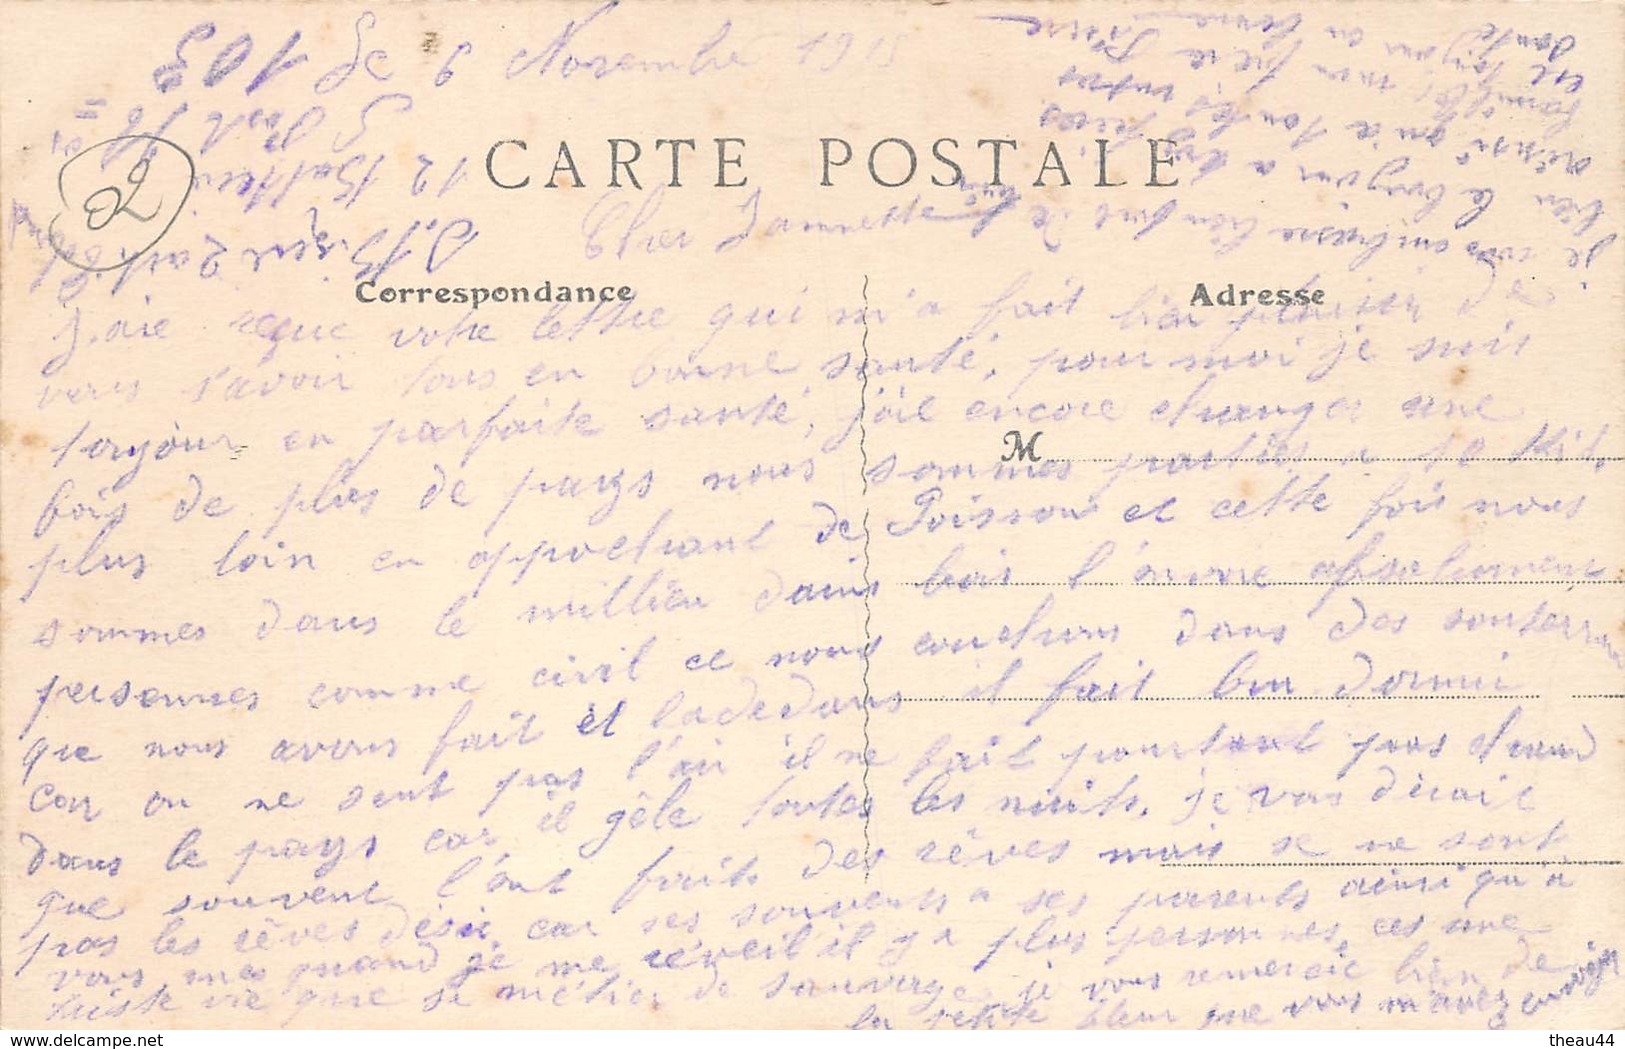 Le 9 Novembre 1915
CARTE POSTALE
Correspondance
Adresse
M
Cher Jannette
J,aie reçue votre lettre qui m'a fait bien plaisir de
vous s'avoir tous en bonne santé, pour moi je suis
toujour en parfaite santé, j'aie encore changer une
fois de plus de pays nous sommes parties a 10 Kil.
plus loin en approchant de Soissons et cette fois nous
sommes dans le millieu dains bois l'onvoie absolument
personnes comme civil ce nous couchons dans des souterrains
que nous avons fait et ladedans il fait bon dormir
car on ne sent pas l'air il ne fait pourtant pas chaud
dans le pays car il gèle toutes les nuits. je vous dirait
que souvent l'ont faits des rêves mais se ne sont
pas les rêves désir car ses souvents a ses parents ainsi qu'a
vous mes quand je me réveil il y a plus personnes, ces une
triste vie que se métier de sauvage, je vous remercie bien de
la petite bleur que vous m'avez envoyer
je vous embrasse bien fort
bien le bonjour a
ainsi qu'a toutes votres
familles mon frère Pierre
et toujour en bonne
santé
103
12 Batterie
theau44